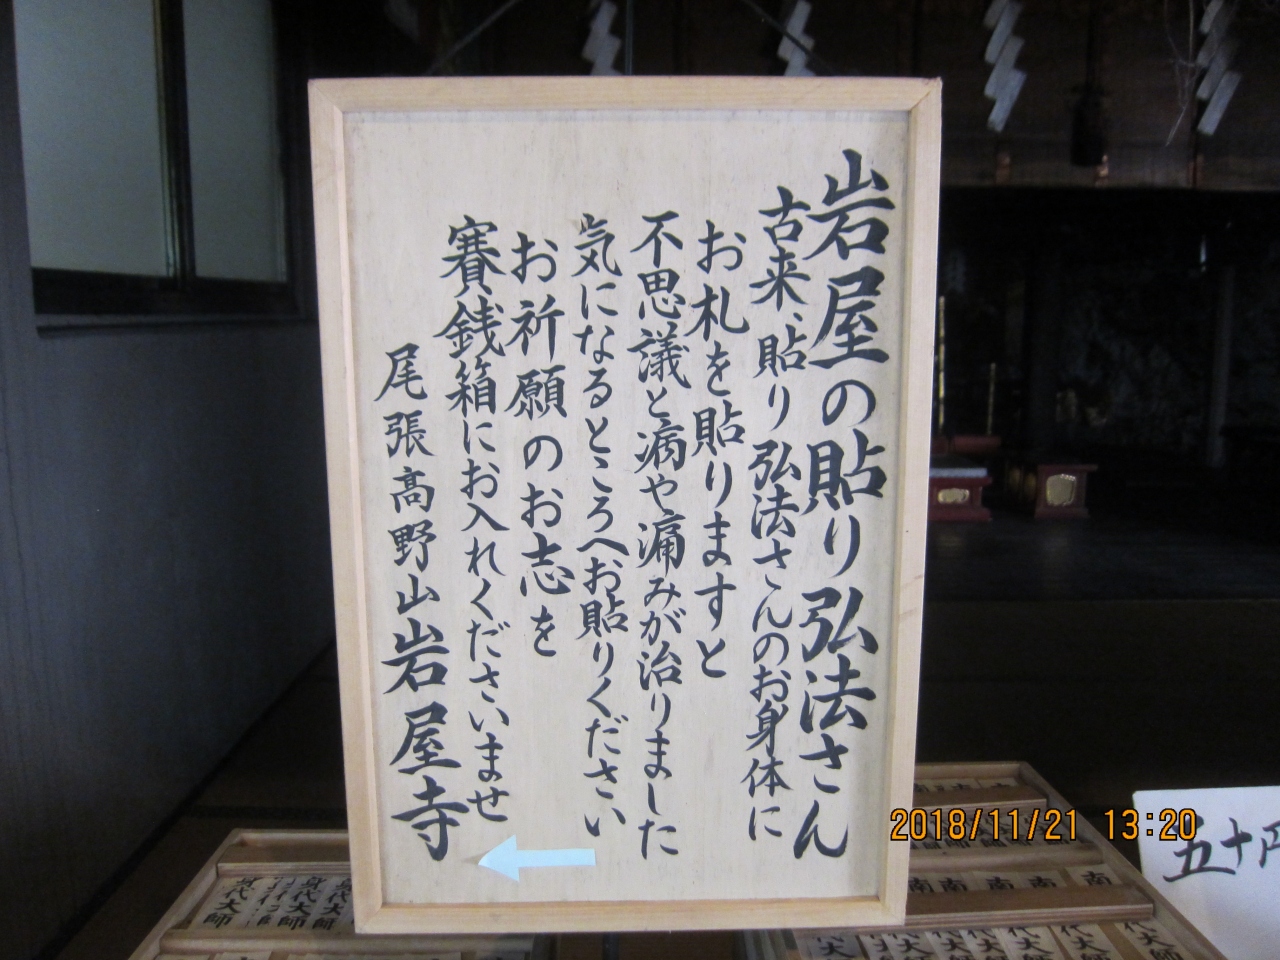 岩屋の貼り弘法さん
古来、貼り弘法さんのお身体に
お札を貼りますと
不思議と病や痛みが治りました
気になるところへお貼りください
お祈願のお志を
賽銭箱にお入れくださいませ
尾張高野山岩屋寺
2018/11/21 13:20
五十円
南
南
南
南
南
代大師
代大師
代大師
代大師
代大師
代大師
代大師